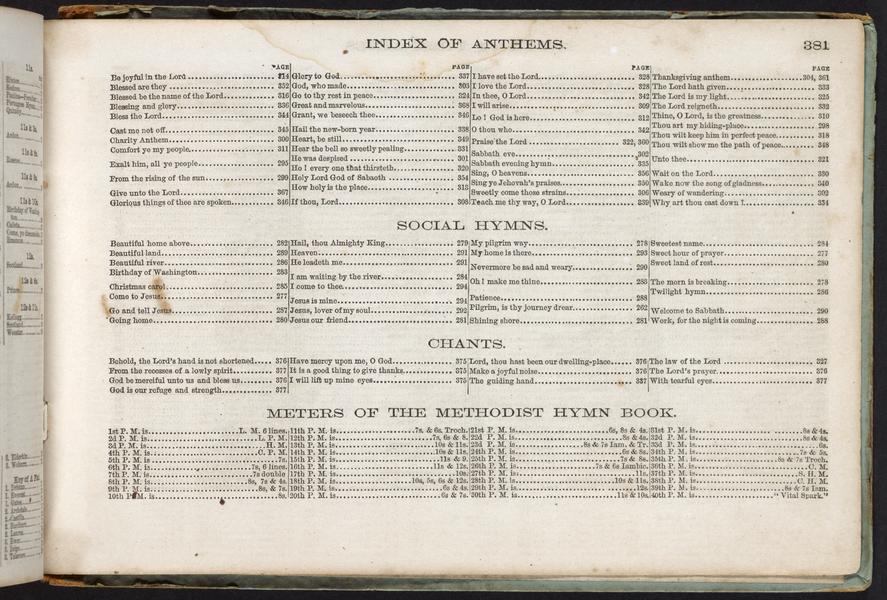 INDEX OF ANTHEMS. 381
PAGE
Be joyful in the Lord 314
Blessed are they 352
Blessed be the name of the Lord 316
Blessing and glory 336
Bless the Lord 344
Cast me not off 345
Charity Anthem 300
Comfort ye my people 311
Exalt him, all ye people 295
From the rising of the sun 299
Give unto the Lord 367
Glorious things of thee are spoken 346
PAGE
Glory to God 337
God, who made 303
Go to thy rest in peace 324
Great and marvelous 368
Grant, we beseech thee 346
Hail the new-born year 338
Heart, be still 349
Hear the bell so sweetly pealing 331
He was despised 301
Ho! every one that thirsteth 320
Holy Lord God of Sabaoth 354
How holy is the place 313
If thou, Lord 308
PAGE
I have set the Lord 328
I love the Lord 328
In thee, O Lord 342
I will arise 309
Lo! God is here 312
O thou who 342
Praise the Lord 322, 360
Sabbath eve 302
Sabbath evening hymn 335
Sing, O heavens 356
Sing ye Jehovah's praises 350
Sweetly come those strains 306
Teach me thy way, O Lord 339
PAGE
Thanksgiving anthem 304, 361
The Lord hath given 333
The Lord is my light 325
The Lord reigneth 332
Thine, O Lord, is the greatness 310
Thou art my hiding-place 298
Thou wilt keep him in perfect peace 318
Thou wilt show me the path of peace 348
Unto thee 321
Wait on the Lord 330
Wake now the song of gladness 340
Weary of wandering 302
Why art thou cast down! 334
SOCIAL HYMNS.
Beautiful home above 282
Beautiful land 289
Beautiful river 286
Birthday of Washington 283
Christmas carol 285
Come to Jesus 277
Go and tell Jesus 287
Going home 280
Hail, thou Almighty King 279
Heaven 291
He leadeth me 291
I am waiting by the river 284
I come to thee 294
Jesus is mine 294
Jesus, lover of my soul 292
Jesus our friend 281
My pilgrim way 278
My home is there 293
Nevermore be sad and weary 290
Oh! make me thine 283
Patience 288
Pilgrim, is thy journey drear 262
Shining shore 281
Sweetest name 284
Swect hour of prayer 277
Sweet land of rest 280
The morn is breaking 278
Twilight hymn 286
Welcome to Sabbath 290
Work, for the night is coming 288
CHANTS.
Behold, the Lord's hand is not shortened 376
From the recesses of a lowly spirit 377
God be merciful unto us and bless us 376
God is our refuge and strength 377
Have mercy upon me, O God 375
It is a good thing to give thanks 375
I will lift up mine eyes 375
Lord, thou hast been our dwelling-place 376
Make a joyful noise 376
The guiding hand 337
The law of the Lord 327
The Lord's prayer 376
With tearful eyes 377
METERS OF THE METHODIST HYMN BOOK.
1st P. M. is L. M. 6 lines.
2d P. M. is L. P. M.
3d P. M. is H. M.
4th P. M. is C. P. M.
5th P. M. is 7s.
6th P. M. is 7s, 6 lines.
7th P. M. is 7s double
8th P. M. is 8s, 7s & 4s.
9th P. M. is 8s, & 7s.
10th P. M. is 8s.
11th P. M. is 7s. & 6s. Troch.
12th P. M. is 7s, 6s & 8.
13th P. M. is 10s & 11s.
14th P. M. is 10s & 11s.
15th P. M. is 11s & 9.
16th P. M. is 11s & 12s.
17th P. M. is 10s.
18th P. M. is 10s, 5s, 6s & 12s.
19th P. M. is 6s & 4s.
20th P. M. is 6s & 7s.
21st P. M. is 6s, 8s & 4s.
22d P. M. is 8s & 4s.
23d P. M. is 8s & 7s Iam. & Tr.
24th P. M. is 6s & 8s.
25th P. M. is 7s & 8s.
26th P. M. is 7s & 6s Iambic.
27th P. M. is 11s.
28th P. M. is 10s & 11s.
29th P. M. is 12s.
30th P. M. is 11s & 10s.
31st P. M. is 8s & 4s.
32d P. M. is 8s & 4s.
33d P. M. is 6s.
34th P. M. is 7s & 5s.
35th P. M. is 8s & 7s Troch.
36th P. M. is C. M.
37th P. M. is S. H. M.
38th P. M. is C. H. M.
39th P. M. is 8s & 7s Iam.
40th P. M. is "Vital Spark."